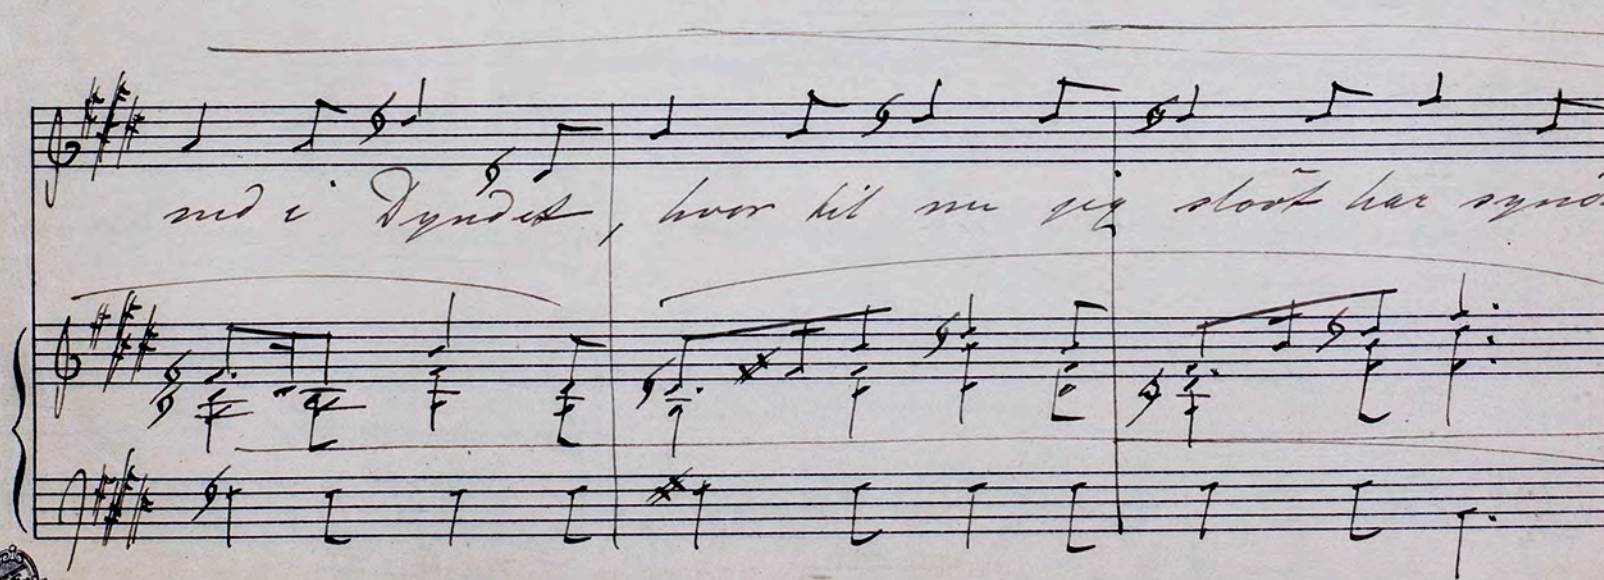 ned i Dyndet, hvor til nu jeg stööt har synd